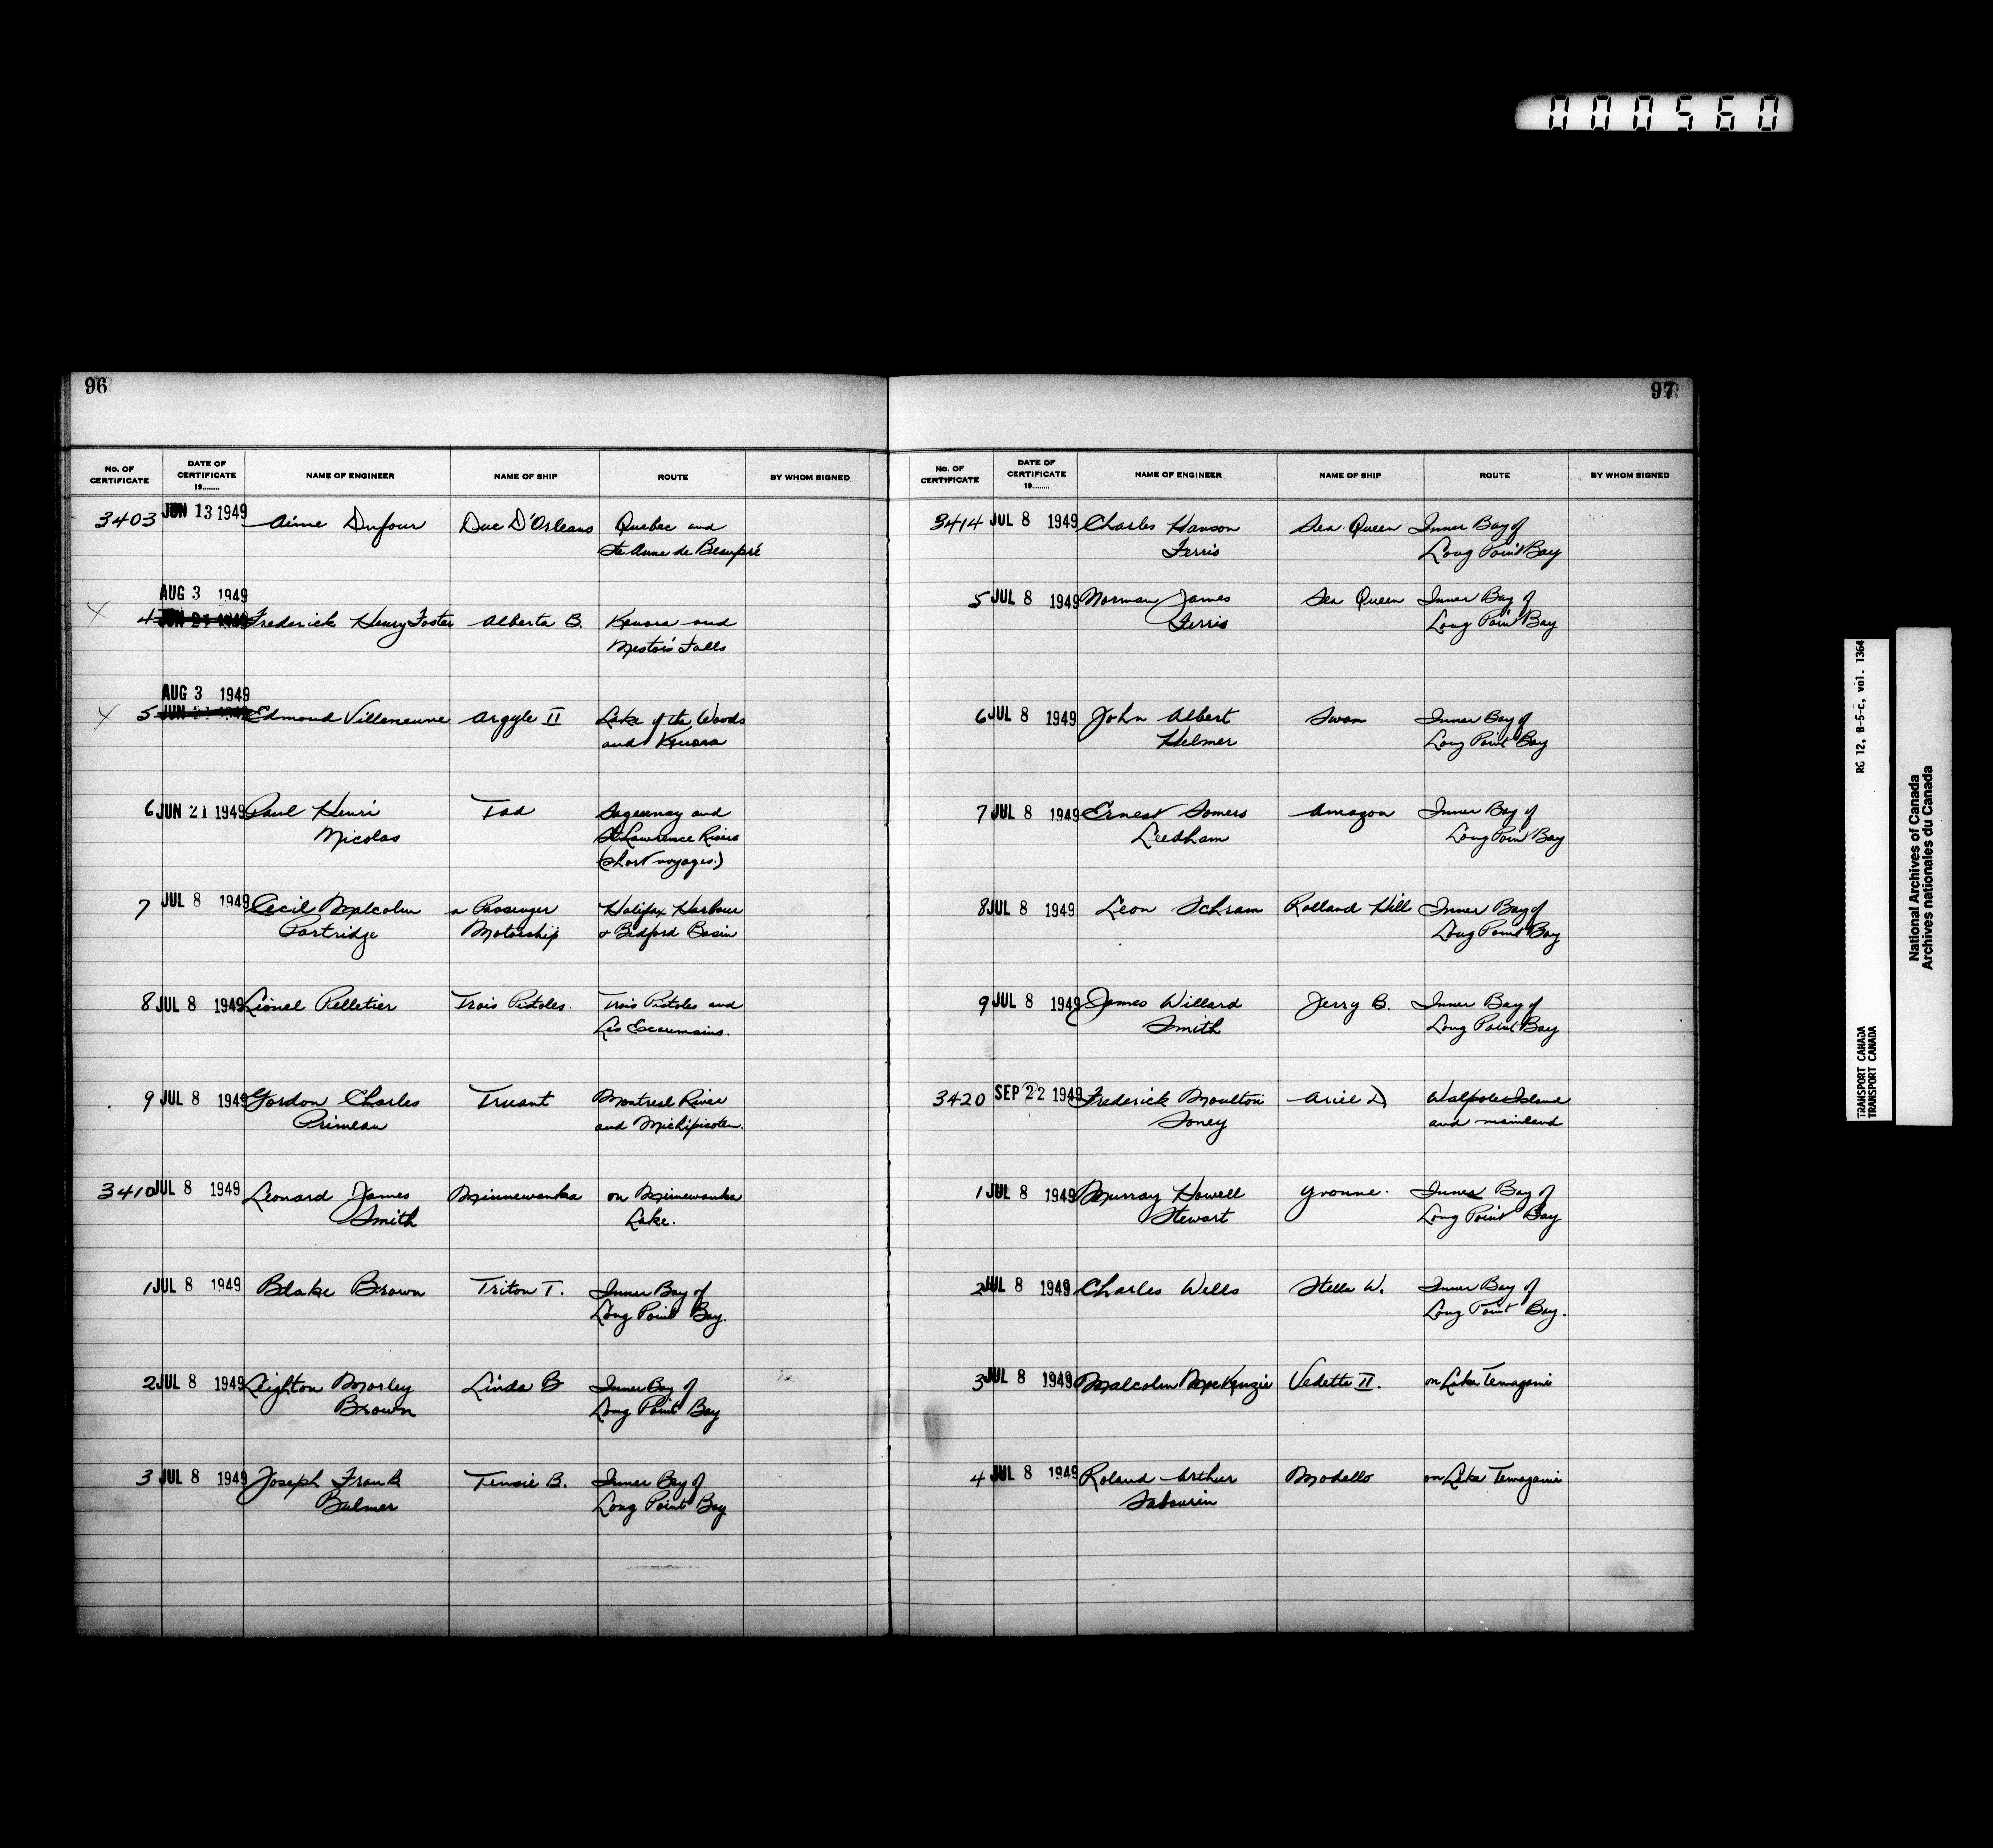 000560
96
No. OF CERTIFICATE DATE OF CERTIFICATE 19........ NAME OF ENGINEER NAME OF SHIP ROUTE BY WHOM SIGNED
3403 JUN 13 1949 Aime Dufour Duc D'Orleans Quebec and
Ste Anne de Beaupré
AUG 3 1949
X 4 JUN 21 1949 Frederick Henry Foster Alberta B. Kenora and
Nestor's Falls
AUG 3 1949
X 5 JUN 21 1949 Edmond Villeneuve Argyle II Lake of the Woods
and Kenora
6 JUN 21 1949 Paul Henri Tad Saguenay and
Nicolas St Lawrence Rivers
(short voyages.)
7 JUL 8 1949 Cecil Malcolm a Passenger Halifax Harbour
Partridge Motorship & Bedford Basin
8 JUL 8 1949 Lionel Pelletier Trois Pistoles. Trois Pistoles and
Les Escoumains.
9 JUL 8 1949 Gordon Charles Truant Montreal River
Primeau and Michipicoten.
3410 JUL 8 1949 Leonard James Minnewanka on Minnewanka
Smith Lake.
1 JUL 8 1949 Blake Brown Triton T. Inner Bay of
Long Point Bay.
2 JUL 8 1949 Leighton Morley Linda B Inner Bay of
Brown Long Point Bay
3 JUL 8 1949 Joseph Frank Tensie B. Inner Bay of
Balmer Long Point Bay
97
No. OF CERTIFICATE DATE OF CERTIFICATE 19........ NAME OF ENGINEER NAME OF SHIP ROUTE BY WHOM SIGNED
3414 JUL 8 1949 Charles Hanson Sea Queen Inner Bay of
Ferris Long Point Bay
5 JUL 8 1949 Norman James Sea Queen Inner Bay of
Ferris Long Point Bay
6 JUL 8 1949 John Albert Swan Inner Bay of
Helmer Long Point Bay
7 JUL 8 1949 Ernest Somers Amazon Inner Bay of
Leedham Long Point Bay
8 JUL 8 1949 Leon Schram Rolland Hill Inner Bay of
Long Point Bay
9 JUL 8 1949 James Willard Jerry B. Inner Bay of
Smith Long Point Bay
3420 SEP 22 1949 Frederick Moulton Ariel D Walpole Island
Soney and mainland
1 JUL 8 1949 Murray Howell Yvonne. Inner Bay of
Stewart Long Point Bay
2 JUL 8 1949 Charles Wells Stella W. Inner Bay of
Long Point Bay.
3 JUL 8 1949 Malcolm McKenzie Vedette II. on Lake Temagami
4 JUL 8 1949 Roland Arthur Modello on Lake Temagami
Sabourin
RG 12, B-5-C, vol. 1364
TRANSPORT CANADA
TRANSPORT CANADA
National Archives of Canada
Archives nationales du Canada